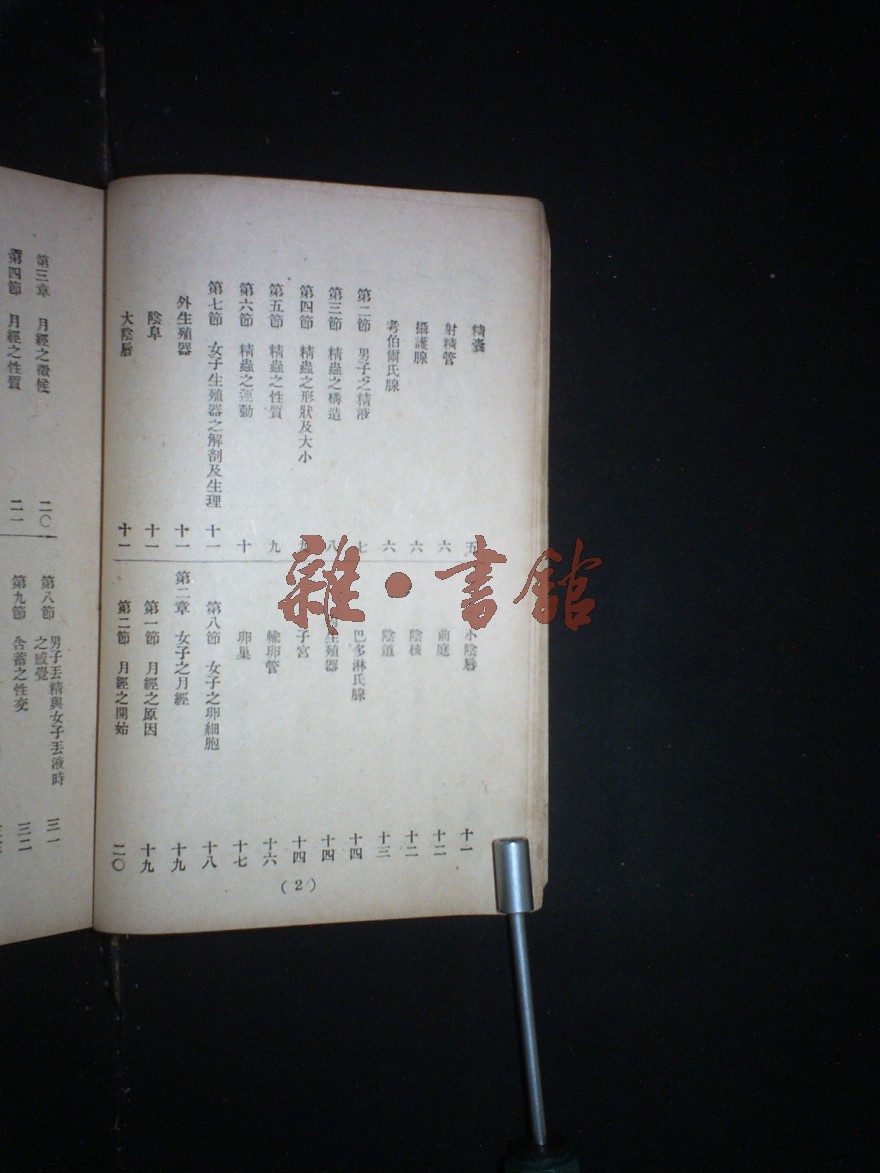 精囊 五
射精管 六
攝護腺 六
考伯爾氏腺 六
第二節 男子之精液 七
第三節 精蟲之構造 八
第四節 精蟲之形狀及大小 九
第五節 精蟲之性質 九
第六節 精蟲之運動 十
第七節 女子生殖器之解剖及生理 十一
外生殖器 十一
陰阜 十一
大陰唇 十一
小陰唇 十一
前庭 十二
陰核 十二
陰道 十三
巴多淋氏腺 十四
生殖器 十四
子宮 十四
輸卵管 十六
卵巢 十七
第八節 女子之卵細胞 十八
第二章 女子之月經 十九
第一節 月經之原因 十九
第二節 月經之開始 二〇
(2)
第三章 月經之徵候 二〇
第四節 月經之性質 二一
第八節 男子丟精與女子丟液時
之感覺 三一
第九節 含蓄之性交 三二
雜·書館